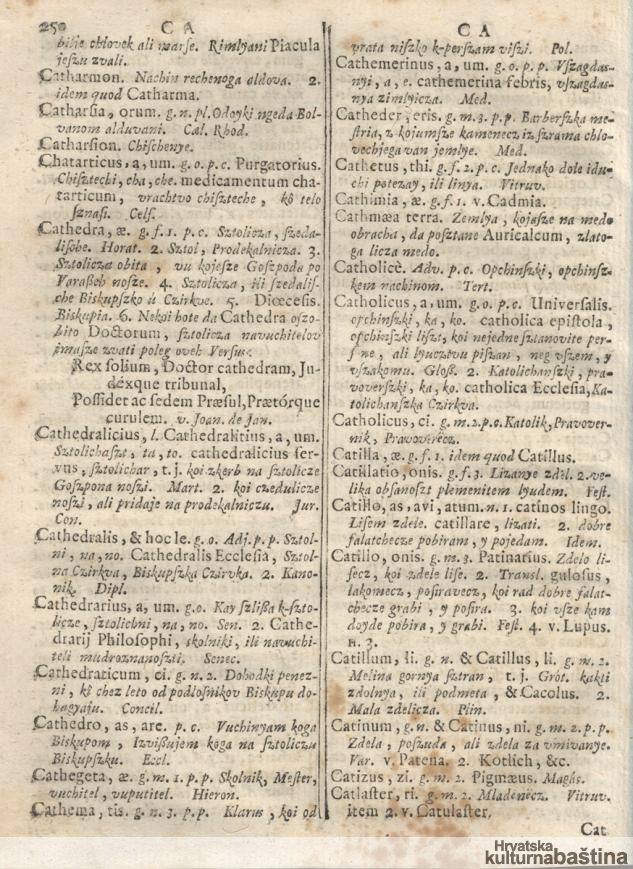 250 C A
bitje chlovek ali marſe. Rimlyani Piacula
jeſzu zvali.
Catharmon. Nachin rechenoga aldova. 2.
idem quod Catharma.
Catharſia, orum. g. n. pl. Odoyki ngeda Bol-
vanom alduvani. Cæl. Rhod.
Catharſion. Chiſchenye.
Chatarticus, a, um. g. o. p. c. Purgatorius.
Chiſztechi, cha, che. medicamentum cha-
tarticum, vrachtvo chiſzteche, kô telo
ſznaſi. Celſ.
Cathedra, æ. g. f. 1. p. c. Sztolicza, ſzeda-
liſche. Horat. 2. Sztol, Prodekalnicza. 3.
Sztolicza obita, vu kojeſze Goſzpoda po
Varaſſeh noſze. 4. Sztolicza, ili ſzedaliſ-
che Biskupſzko ù Czirkve. 5. Diœceſis.
Biskupia. 6. Nekoi hote da Cathedra oſzo-
bito Doctorum, ſztolicza navuchitelov
imaſze zvati poleg oveh Verſus.
Rex ſolium, Doctor cathedram, Ju-
dexque tribunal,
Poſſidet ac ſedem Præſul, Prætórque
curulem. v. Joan. de Jan.
Cathedralicius, l. Cathedralitius, a, um.
Sztolichaſzt, ta, to. cathedralicius ſer-
vus, ſztolichar, t. j. koi zkerb na ſztolicze
Goſzpona noſzi. Mart. 2. koi czedulicze
noſzi, ali pridaje na prodekalniczu. Jur.
Con.
Cathedralis, & hoc le. g. o. Adj. p. p. Sztol-
ni, na, no. Cathedralis Eccleſia, Sztol-
na Czirkva, Biskupſzka Czirvka. 2. Kano-
nik. Dipl.
Cathedrarius, a, um. g. o. Kay ſzliſſa k-ſzto-
licze, ſztolichni, na, no. Sen. 2. Cathe-
drarij Philoſophi, skolniki, ili navuchi-
teli mudroznanoſzti. Senec.
Cathedraticum, ci. g. n. 2. Dohodki penez-
ni, kê chez leto od podloſnikov Biskupu do-
hagyaju. Concil.
Cathedro, as, are. p. c. Vuchinyam koga
Biskupom, Izviſſujem koga na ſztoliczu
Biskupſzku. Eccl.
Cathegeta, æ. g. m. 1. p. p. Skolnik, Meſter,
vuchitel, vuputitel. Hieron.
Cathema, tis. g. n. 3. p. p. Klarus, koi od
C A
vrata niſzko k-perſzam viſzi. Pol.
Cathemerinus, a, um. g. o. p. p. Vſzagdas-
nyi, a, e. cathemerina febris, vſzagdas-
nya zimlyicza. Med.
Catheder, eris. g. m. 3. p. p. Barberſzka me-
ſtria, z kojumſze kamenecz iz ſzrama chlo-
vechjega van jemlye. Med.
Cathetus, thi. g. f. 2. p. c. Jednako dole idu-
chi potezay, ili linya. Vitruv.
Cathimia, æ. g. f. 1. v. Cadmia.
Cathmæa terra. Zemlya, kojaſze na medo
obracha, da poſztane Auricalcum, zlato-
ga licza medo.
Catholicè. Adv. p. c. Opchinſzki, opchinſz-
kem nachinom. Tert.
Catholicus, a, um. g. o. p. c. Universalis.
opchinſzki, ka, ko. catholica epiſtola,
opchinſzki liſzt, koi nejedne ſztanovite per-
ſone, ali lyucztvu piſzan, neg vſzem, y
vſzakomu. Gloſſ. 2. Katolichanſzki, pra-
voverſzki, ka, ko. catholica Eccleſia, Ka-
tolichanſzka Czirkva.
Catholicus, ci. g. m. 2. p. c. Katolik, Pravover-
nik, Pravoverecz.
Catilla, æ. g. f. 1. idem quod Catillus.
Catillatio, onis. g. f. 3. Lizanye zdél. 2. ve-
lika obſanoſzt plemenitem lyudem. Feſt.
Catillo, as, avi, atum. n. 1. catinos lingo.
Liſem zdele. catillare, lizati. 2. dobre
falatchecze pobiram, y pojedam. Idem.
Catillo, onis. g. m. 3. Patinarius. Zdelo li-
ſecz, koi zdele liſe. 2. Tranſl. guloſus,
lakomecz, poſiravecz, koi rad dobre falat-
checze grabi, y poſira. 3. koi vſze kam
doyde pobira, y grabi. Feſt. 4. v. Lupus.
n. 3.
Catillum, li. g. n. & Catillus, li. g. m. 2.
Melina gornya ſztran, t. j. Grót. kakti
zdolnya, ili podmeta, & Cacolus. 2.
Mala zdelicza. Plin.
Catinum, g. n. & Catinus, ni. g. m. 2. p. p.
Zdela, poſzuda, ali zdela za vmivanye.
Var. v. Patena. 2. Kotlich, &c.
Catizus, zi. g. m. 2. Pigmæus. Magás.
Catlaſter, ri. g. m. 2. Mladenecz. Vitruv.
item 2. v. Catulaſter.
Cat
Hrvatska
kulturnabaština